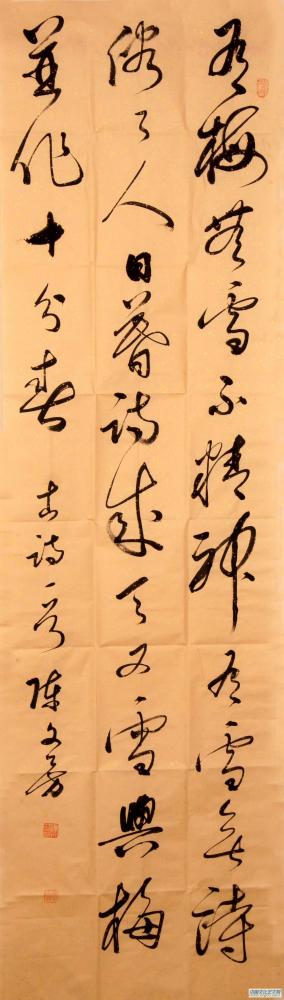 有梅無雪不精神有雪無詩
俗了人日暮詩成天又雪與梅
並作十分春 古詩一首 陳文芳